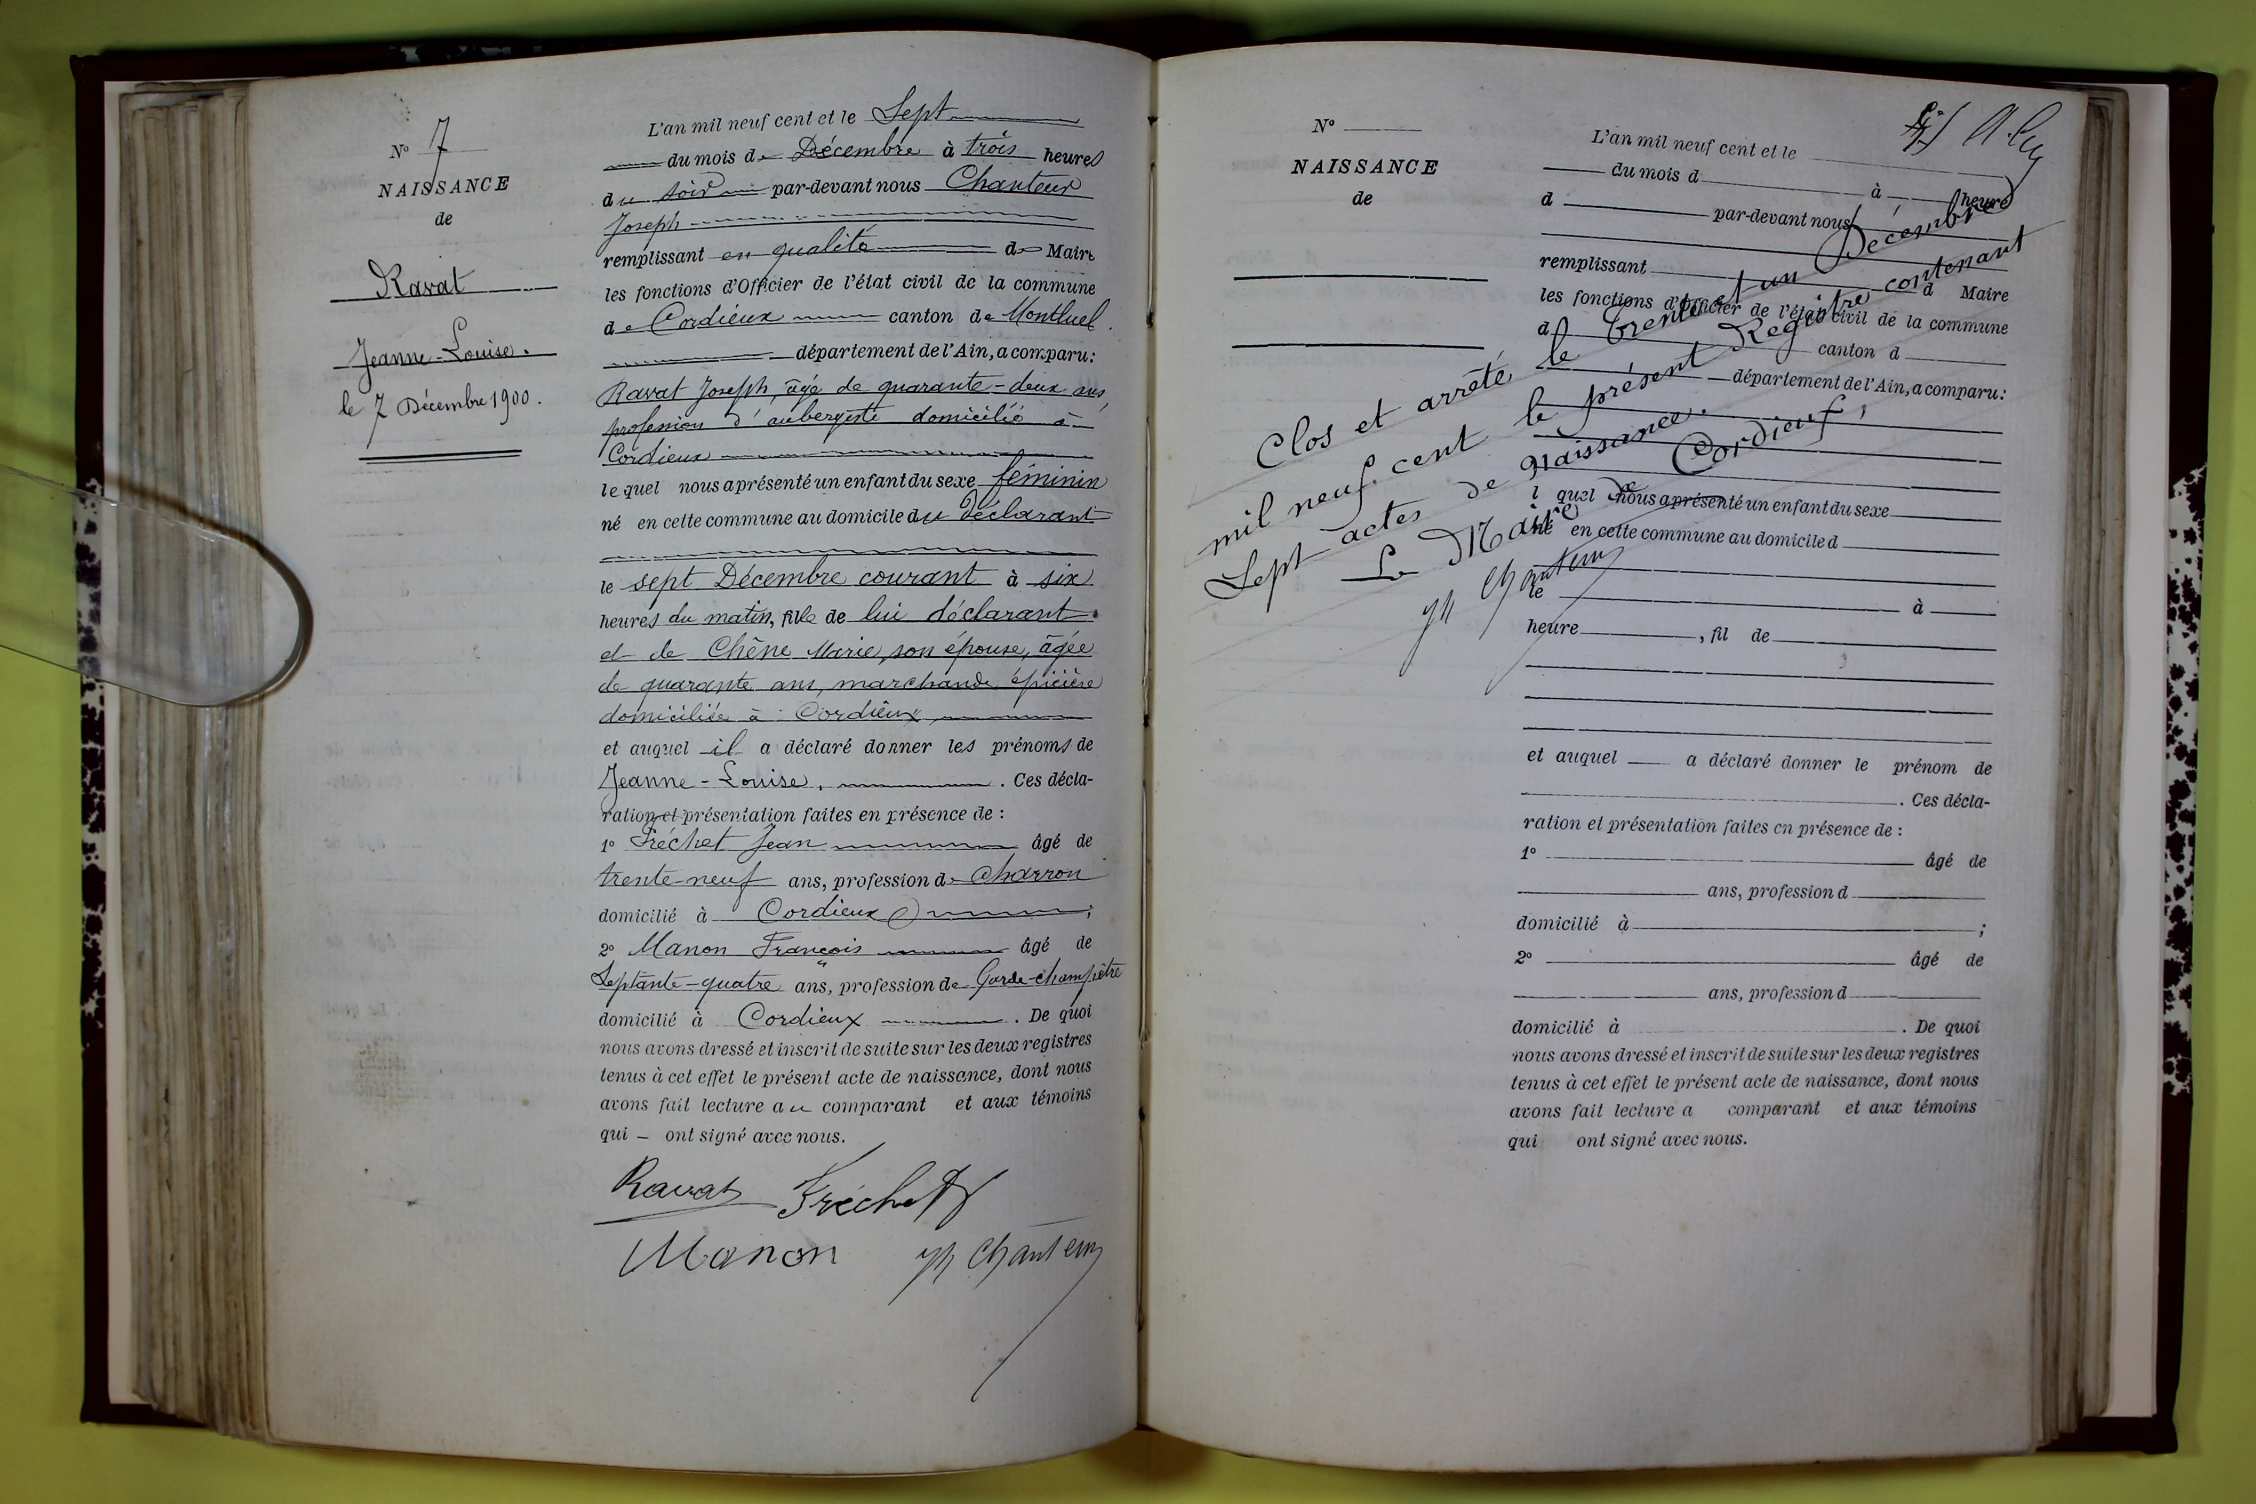 N° 7
NAISSANCE
de
Ravat
Jeanne-Louise.
le 7 Décembre 1900.
L'an mil neuf cent et le Sept
du mois de Décembre à trois heures
du soir par-devant nous Chanteur
Joseph
remplissant en qualité de Maire
les fonctions d'Officier de l'état civil de la commune
de Cordieux canton de Montluel.
département de l'Ain, a comparu:
Ravat Joseph, âgé de quarante-deux ans,
profession d'aubergiste domicilié à
Cordieux
lequel nous a présenté un enfant du sexe féminin
né en cette commune au domicile du déclarant
le sept Décembre courant à six
heures du matin, fille de lui déclarant
et de Chêne Marie, son épouse, âgée
de quarante ans, marchande épicière
domiciliée à Cordieux
et auquel il a déclaré donner les prénoms de
Jeanne-Louise, . Ces décla-
ration et présentation faites en présence de :
1° Fréchet Jean âgé de
trente-neuf ans, profession de Charron
domicilié à Cordieux ;
2° Manon François âgé de
Septante-quatre ans, profession de Garde-champêtre
domicilié à Cordieux . De quoi
nous avons dressé et inscrit de suite sur les deux registres
tenus à cet effet le présent acte de naissance, dont nous
avons fait lecture au comparant et aux témoins
qui – ont signé avec nous.
Ravat Fréchet
Manon Chanteur
N°
NAISSANCE
de
L'an mil neuf cent et le
du mois d à heure
d par-devant nous
remplissant d Maire
les fonctions d'Officier de l'état civil de la commune
d canton d
département de l'Ain, a comparu:
Clos et arrêté le trente et un Décembre
mil neuf cent le présent Registre contenant
Sept actes de naissance. de Cordieux,
Le Maire
Chanteur
l quel nous a présenté un enfant du sexe
né en cette commune au domicile d
le à
heure , fil de
et auquel a déclaré donner le prénom de
. Ces décla-
ration et présentation faites en présence de :
1° âgé de
ans, profession d
domicilié à ;
2° âgé de
ans, profession d
domicilié à . De quoi
nous avons dressé et inscrit de suite sur les deux registres
tenus à cet effet le présent acte de naissance, dont nous
avons fait lecture a comparant et aux témoins
qui ont signé avec nous.